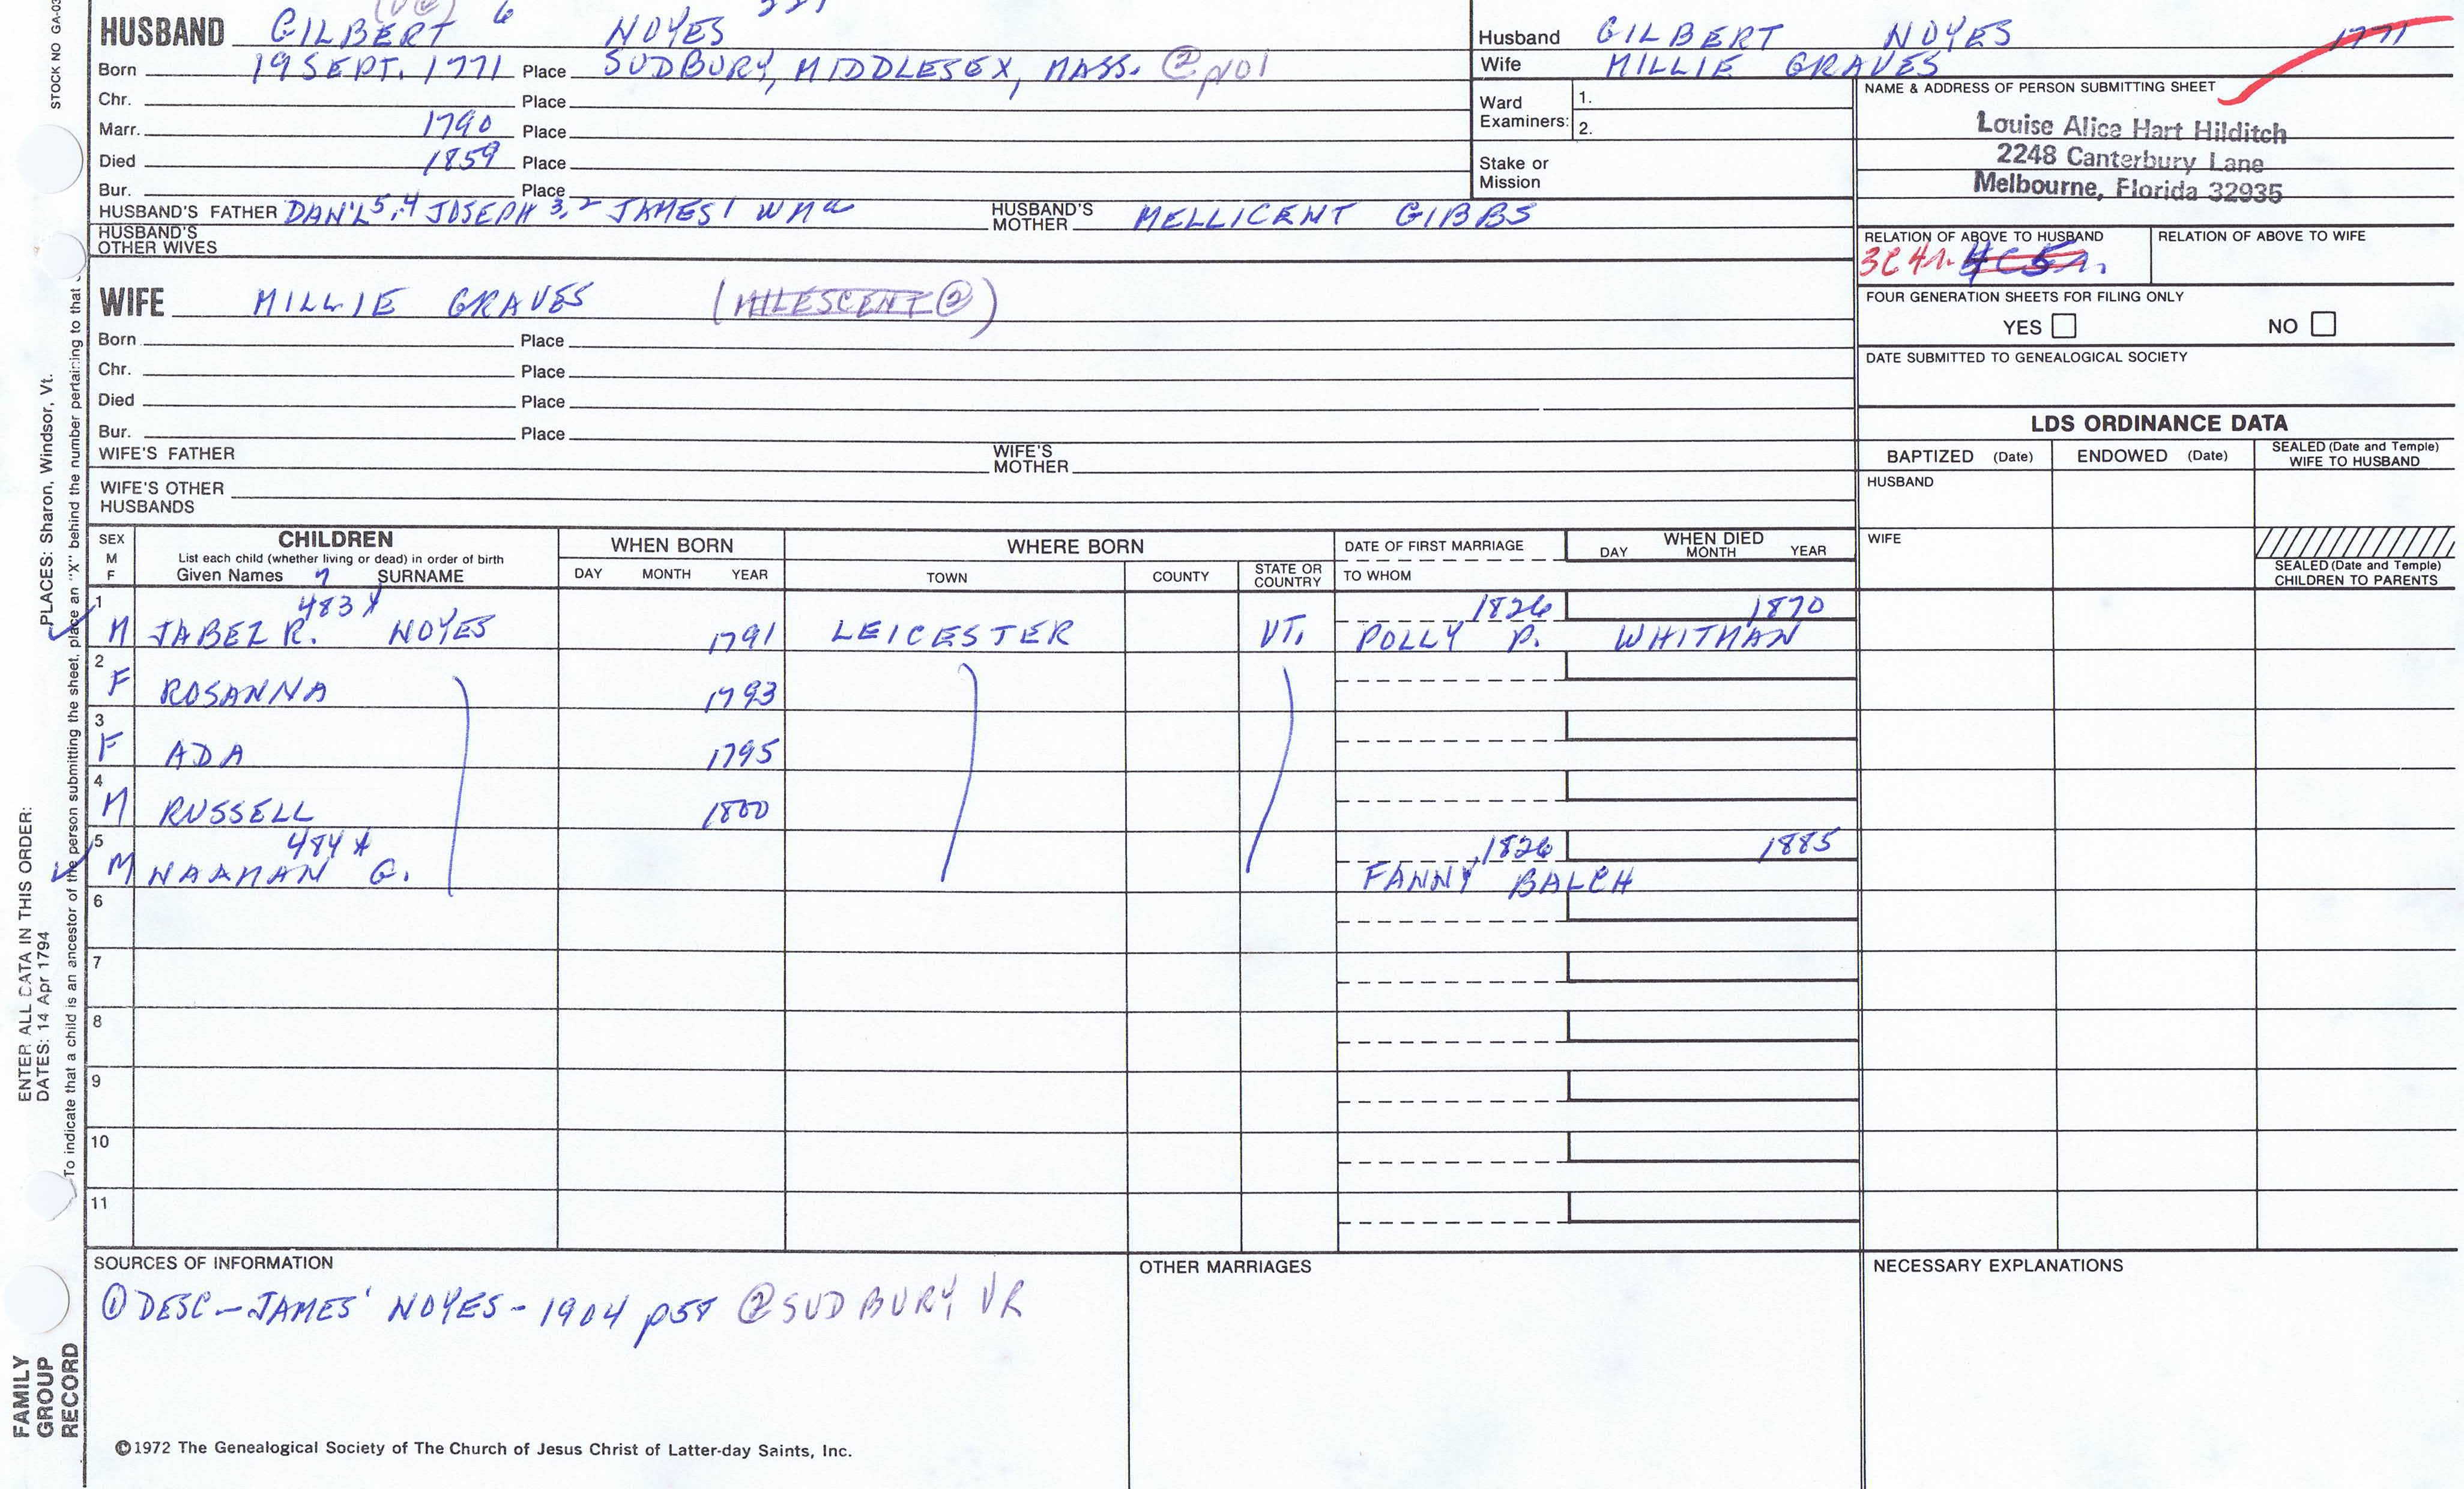 STOCK NO GA-03
HUSBAND GILBERT 6 NOYES
Born 19 SEPT. 1771 Place SUDBURY, MIDDLESEX, MASS. ② p101
Chr. Place
Marr. 1790 Place
Died 1859 Place
Bur. Place
HUSBAND'S FATHER DAN'L 5,4 JOSEPH 3,2 JAMES 1 WM a HUSBAND'S MOTHER MELLICENT GIBBS
HUSBAND'S OTHER WIVES
WIFE MILLIE GRAVES (MILESCENT ②)
Born Place
Chr. Place
Died Place
Bur. Place
WIFE'S FATHER WIFE'S MOTHER
WIFE'S OTHER HUSBANDS
Husband GILBERT NOYES 1771
Wife MILLIE GRAVES
Ward Examiners: 1.
2.
Stake or Mission
NAME & ADDRESS OF PERSON SUBMITTING SHEET
Louise Alice Hart Hilditch
2248 Canterbury Lane
Melbourne, Florida 32935
RELATION OF ABOVE TO HUSBAND RELATION OF ABOVE TO WIFE
3C4r. 4C5r.
FOUR GENERATION SHEETS FOR FILING ONLY
YES NO
DATE SUBMITTED TO GENEALOGICAL SOCIETY
LDS ORDINANCE DATA
BAPTIZED (Date) ENDOWED (Date) SEALED (Date and Temple) WIFE TO HUSBAND
HUSBAND
WIFE
SEALED (Date and Temple) CHILDREN TO PARENTS
SEX M F
CHILDREN
List each child (whether living or dead) in order of birth
Given Names 7 SURNAME
WHEN BORN
DAY MONTH YEAR
WHERE BORN
TOWN COUNTY STATE OR COUNTRY
DATE OF FIRST MARRIAGE
TO WHOM
WHEN DIED
DAY MONTH YEAR
1 483 X 1826 1870
M JABEZ R. NOYES 1791 LEICESTER VT. POLLY P. WHITMAN
2
F ROSANNA 1793
3
F ADA 1795
4
M RUSSELL 1800
5 484 X 1826 1885
M NAAMAN G. FANNY BALCH
6
7
8
9
10
11
SOURCES OF INFORMATION
① DESC - JAMES' NOYES - 1904 p58 ② SUDBURY VR
OTHER MARRIAGES
NECESSARY EXPLANATIONS
©1972 The Genealogical Society of The Church of Jesus Christ of Latter-day Saints, Inc.
ENTER ALL DATA IN THIS ORDER:
DATES: 14 Apr 1794
PLACES: Sharon, Windsor, Vt.
To indicate that a child is an ancestor of the person submitting the sheet, place an "X" behind the number pertaining to that
FAMILY
GROUP
RECORD